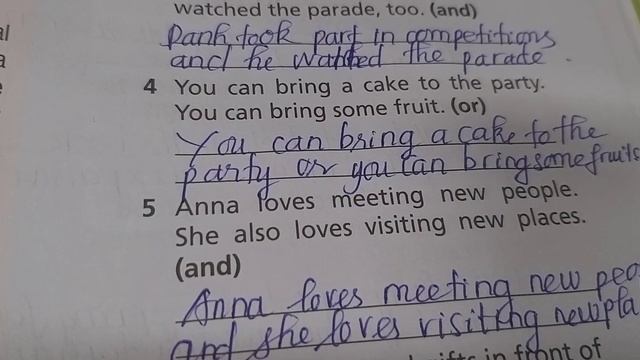 watched the parade, too. (and)
took part in competitions
and he the parade.
4 You can bring a cake to the party.
You can bring some fruit. (or)
You can bring a cake to the
party or you can bring some fruits
5 Anna loves meeting new people.
She also loves visiting new places.
(and)
Anna loves meeting new peo
and she loves visiting new pla
in front of